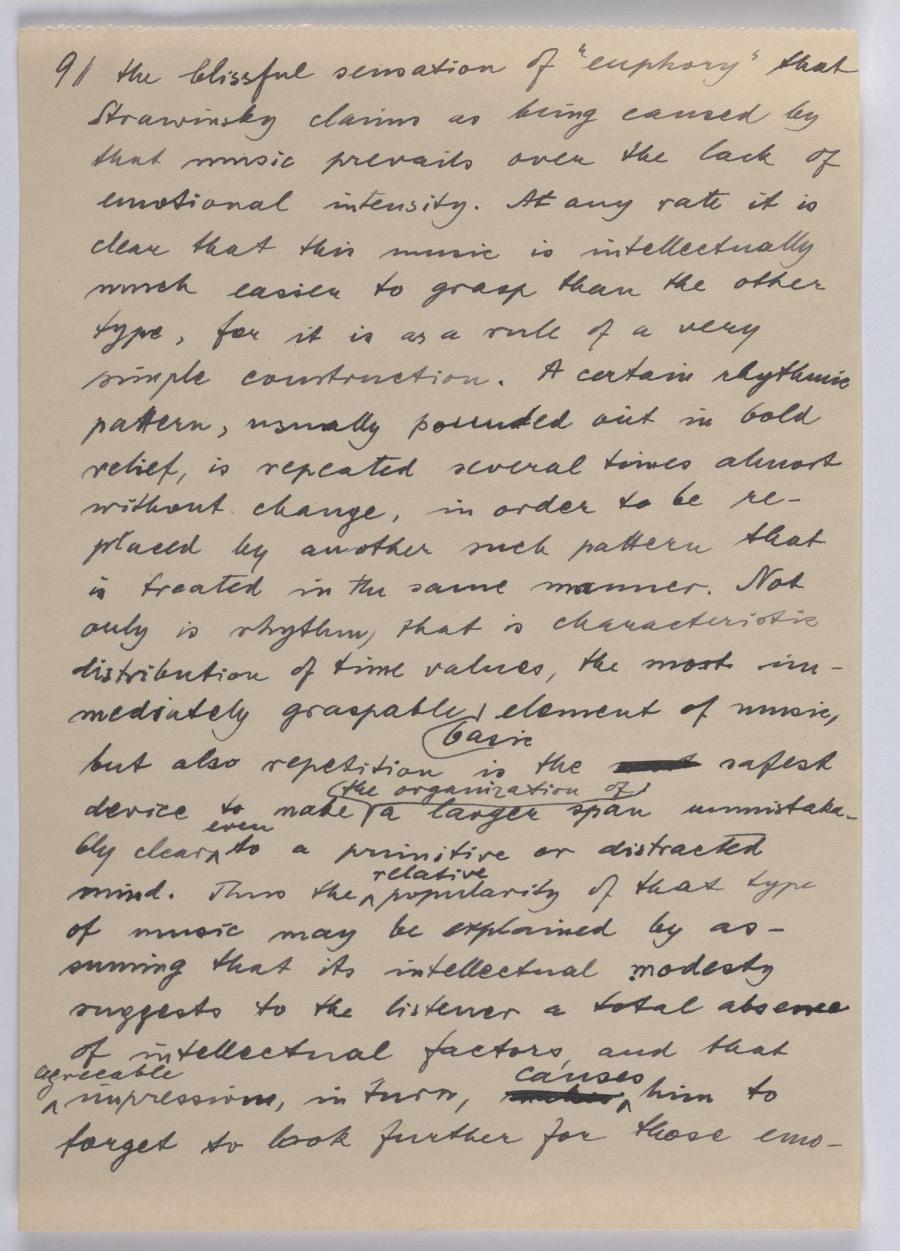 9// the blissful sensation of "euphory" that
Strawinsky claims as being caused by
that music prevails over the lack of
emotional intensity. At any rate it is
clear that this music is intellectually
much easier to grasp than the other
type, for it is as a rule of a very
simple construction. A certain rhythmic
pattern, usually pounded out in bold
relief, is repeated several times almost
without change, in order to be re-
placed by another such pattern that
is treated in the same manner. Not
only is rhythm, that is characteristic
distribution of time values, the most im-
mediately graspable, element of music,
basic
but also repetition is the safest
the organization of
device to make a larger span unmistaka-
even
bly clear to a primitive or distracted
relative
mind. Thus the popularity of that type
of music may be explained by as-
suming that its intellectual modesty
suggests to the listener a total absence
of intellectual factors, and that
agreeable causes
impression, in turn, him to
forget to look further for those emo-